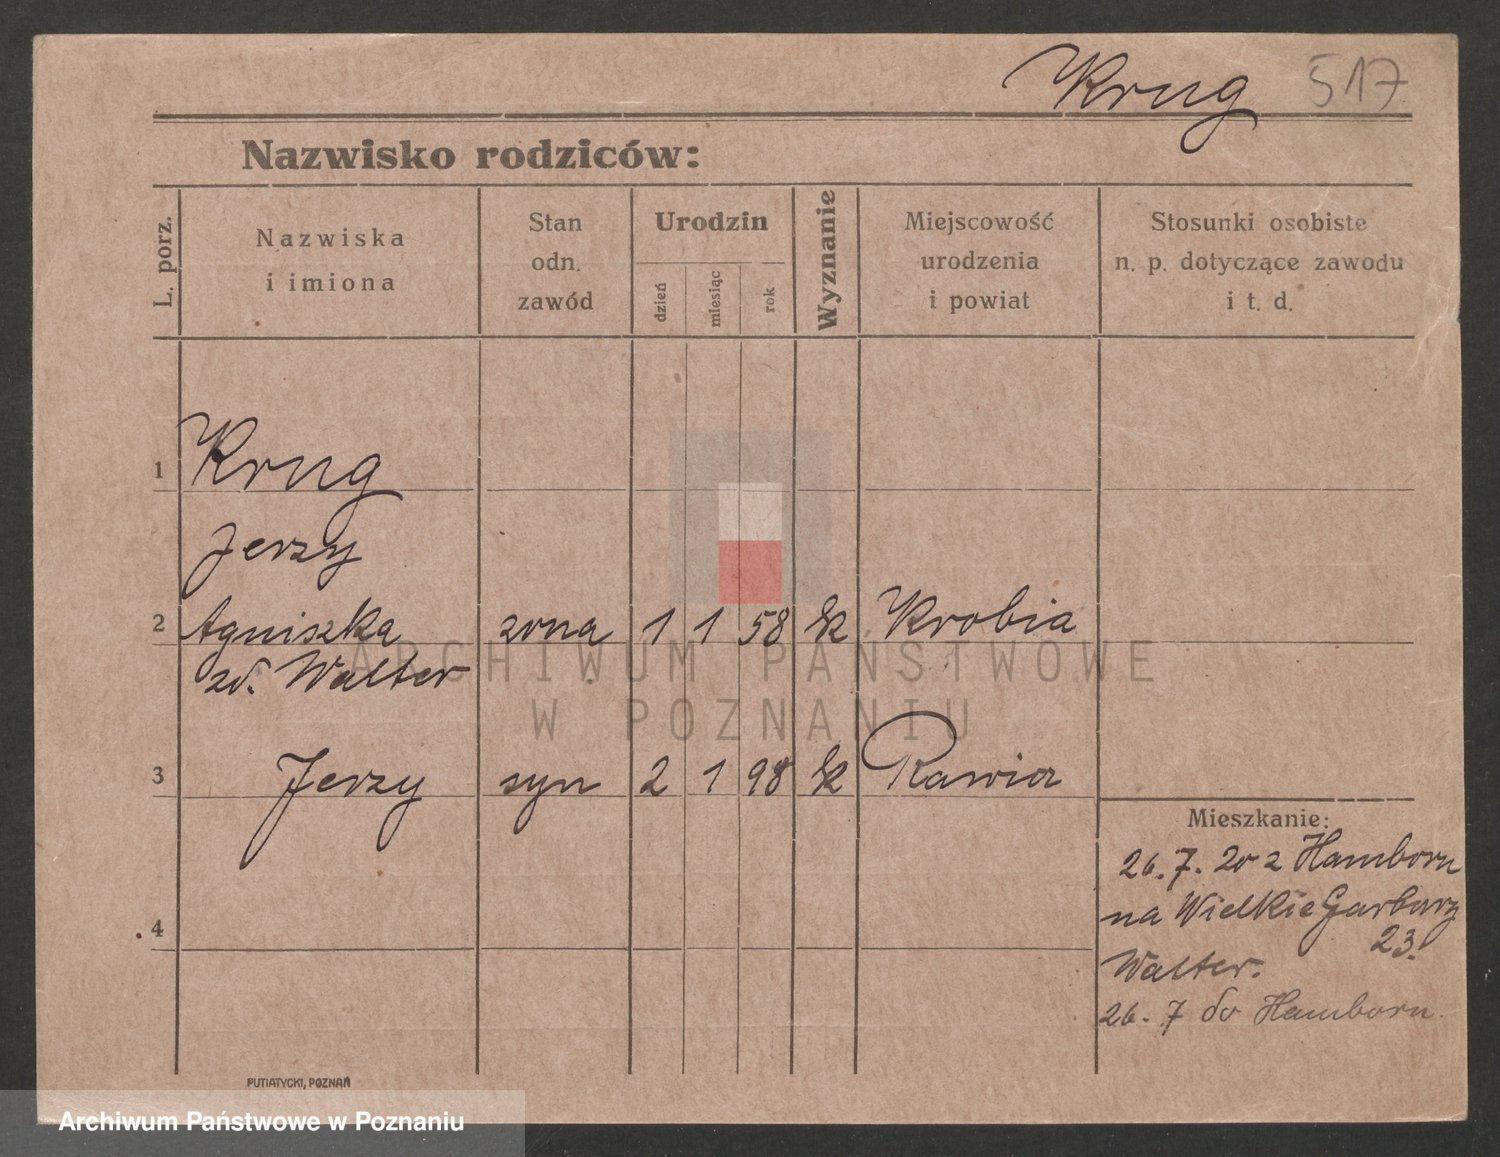 Krug 517
Nazwisko rodziców:
L. porz.
Nazwiska
i imiona
Stan
odn.
zawód
Urodzin
dzień
miesiąc
rok
Wyznanie
Miejscowość
urodzenia
i powiat
Stosunki osobiste
n. p. dotyczące zawodu
i t. d.
1 Krug
Jerzy
2 Agniszka zona 1 1 58 k Krobia
zd. Walter
3 Jerzy syn 2 1 98 k Rawicz
4
Mieszkanie:
26. 7. 20 z Hamborn
na Wielkie Garbary
23.
Walter.
26. 7 do Hamborn.
PUTIATYCKI, POZNAŃ
ARCHIWUM PAŃSTWOWE
W POZNANIU
Archiwum Państwowe w Poznaniu